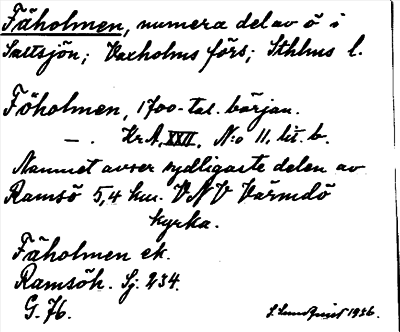 Fäholmen, numera del av ö i
Saltsjön; Vaxholms förs; Sthlms l.
Föholmen, 1700-tal. början.
—. Kr.A. XXII. N:o 11, lit. b.
Namnet avser sydligaste delen av
Ramsö 5,4 km. VNV Värmdö
kyrka.
Fäholmen ek.
Ramsök. Sj. 234.
G. 76.
S. Lundquist 1936.